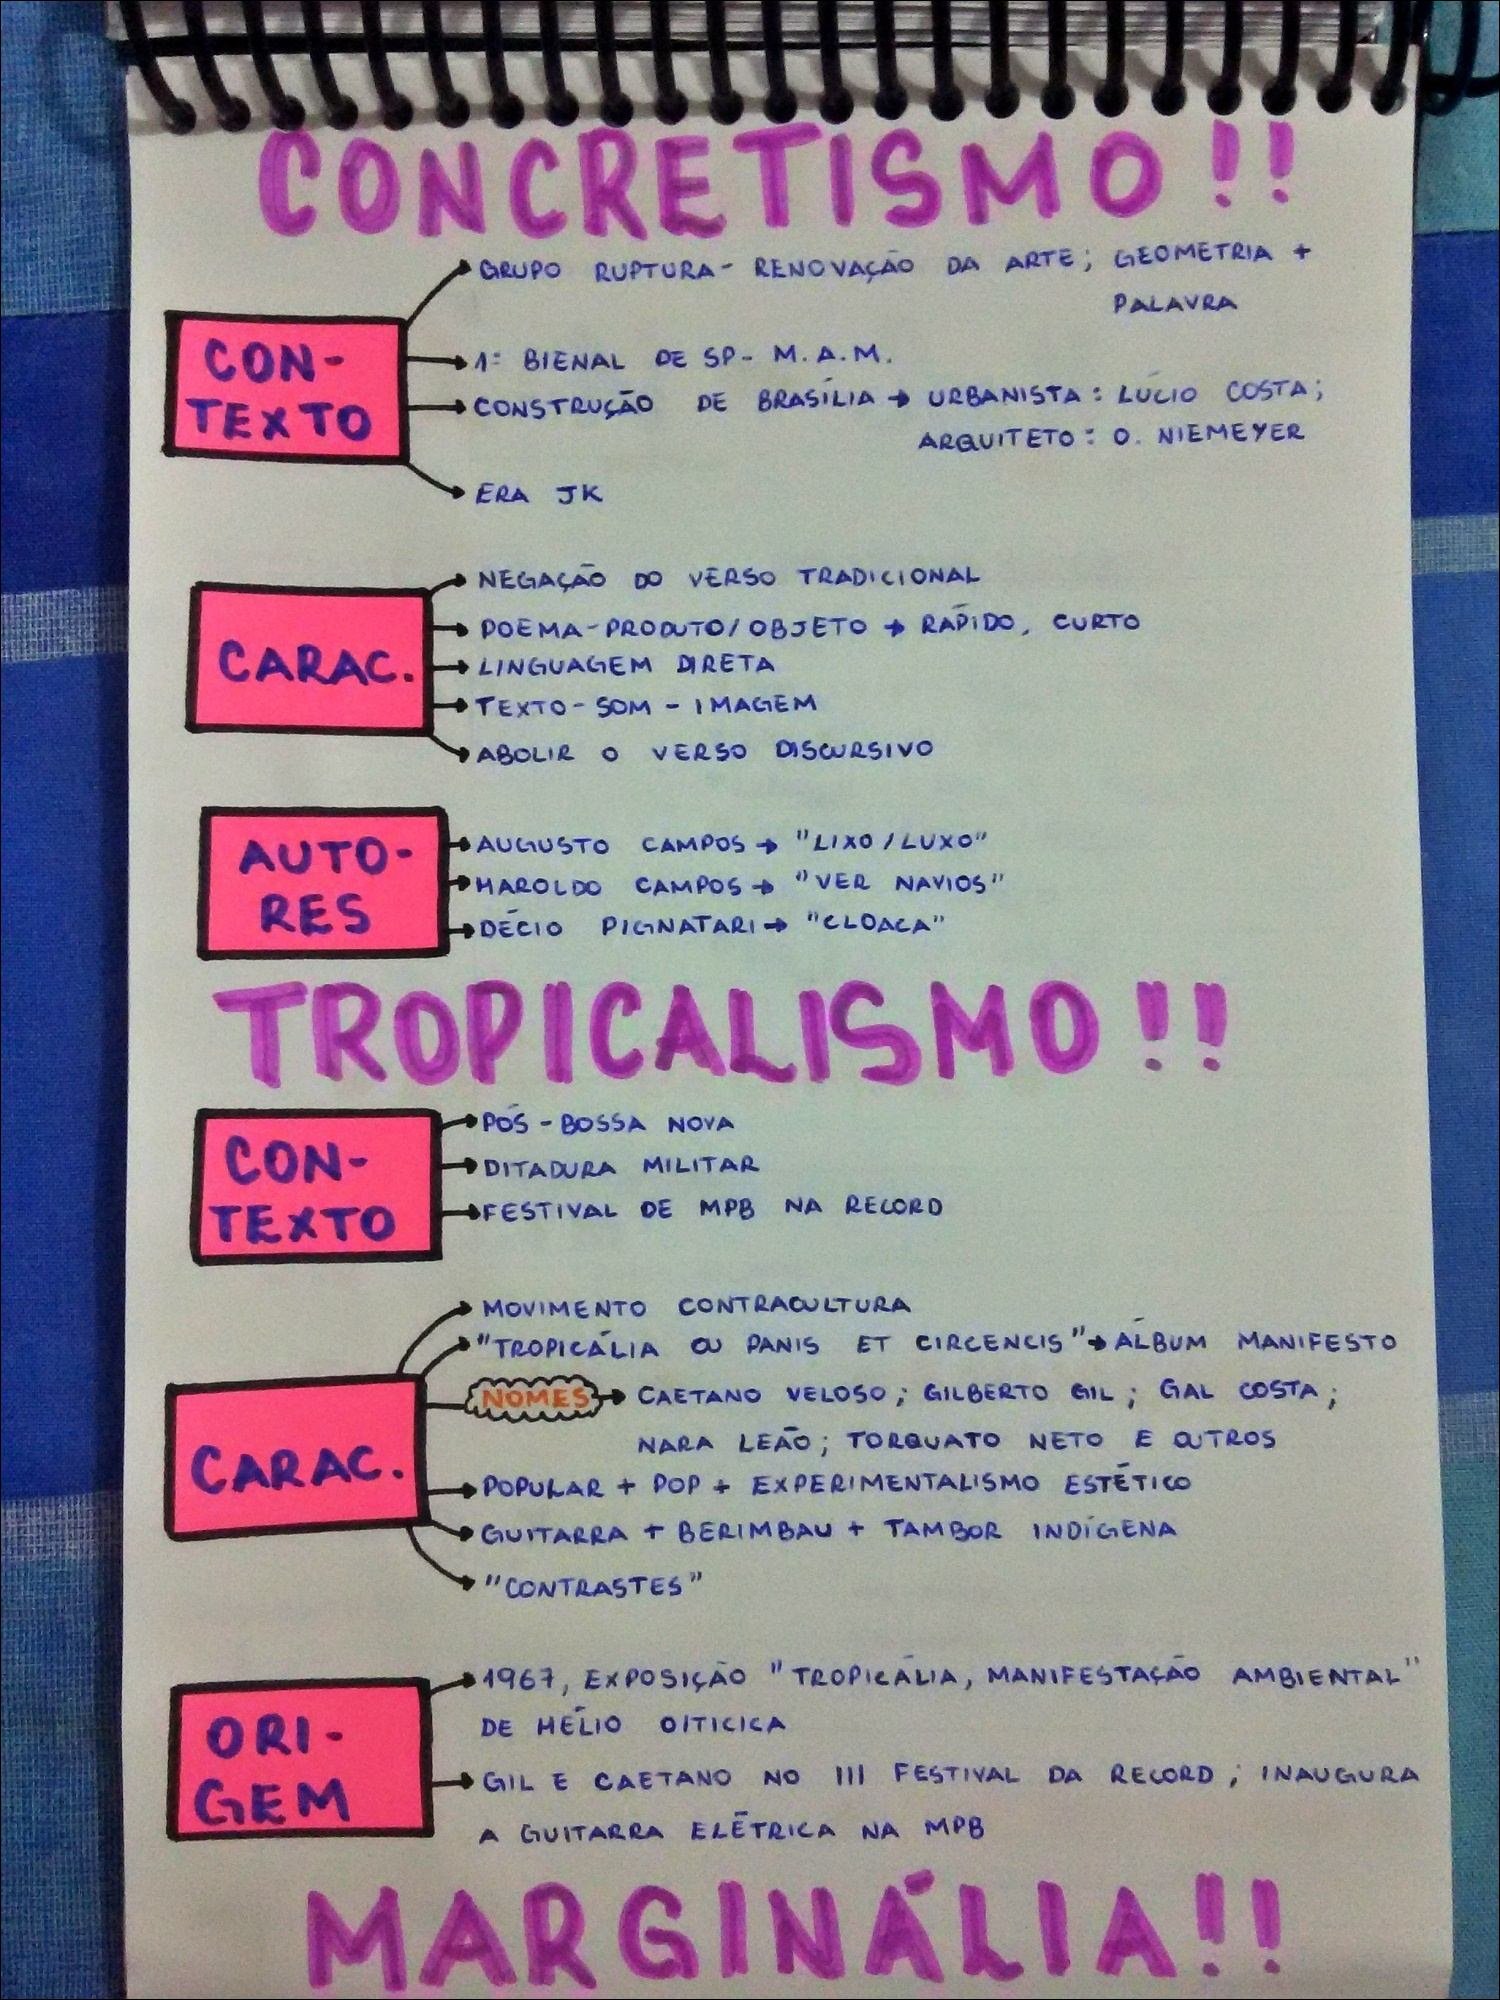 CONCRETISMO!!
CON-
TEXTO
GRUPO RUPTURA - RENOVAÇÃO DA ARTE; GEOMETRIA +
PALAVRA
1ª BIENAL DE SP - M.A.M.
CONSTRUÇÃO DE BRASÍLIA → URBANISTA: LÚCIO COSTA;
ARQUITETO: O. NIEMEYER
ERA JK
CARAC.
NEGAÇÃO DO VERSO TRADICIONAL
POEMA-PRODUTO/OBJETO → RÁPIDO, CURTO
LINGUAGEM DIRETA
TEXTO - SOM - IMAGEM
ABOLIR O VERSO DISCURSIVO
AUTO-
RES
AUGUSTO CAMPOS → "LIXO/LUXO"
HAROLDO CAMPOS → "VER NAVIOS"
DÉCIO PIGNATARI → "CLOACA"
TROPICALISMO!!
CON-
TEXTO
PÓS-BOSSA NOVA
DITADURA MILITAR
FESTIVAL DE MPB NA RECORD
CARAC.
MOVIMENTO CONTRACULTURA
"TROPICÁLIA OU PANIS ET CIRCENCIS" → ÁLBUM MANIFESTO
NOMES → CAETANO VELOSO; GILBERTO GIL; GAL COSTA;
NARA LEÃO; TORQUATO NETO E OUTROS
POPULAR + POP + EXPERIMENTALISMO ESTÉTICO
GUITARRA + BERIMBAU + TAMBOR INDÍGENA
"CONTRASTES"
ORI-
GEM
1967, EXPOSIÇÃO "TROPICÁLIA, MANIFESTAÇÃO AMBIENTAL"
DE HÉLIO OITICICA
GIL E CAETANO NO III FESTIVAL DA RECORD; INAUGURA
A GUITARRA ELÉTRICA NA MPB
MARGINÁLIA!!